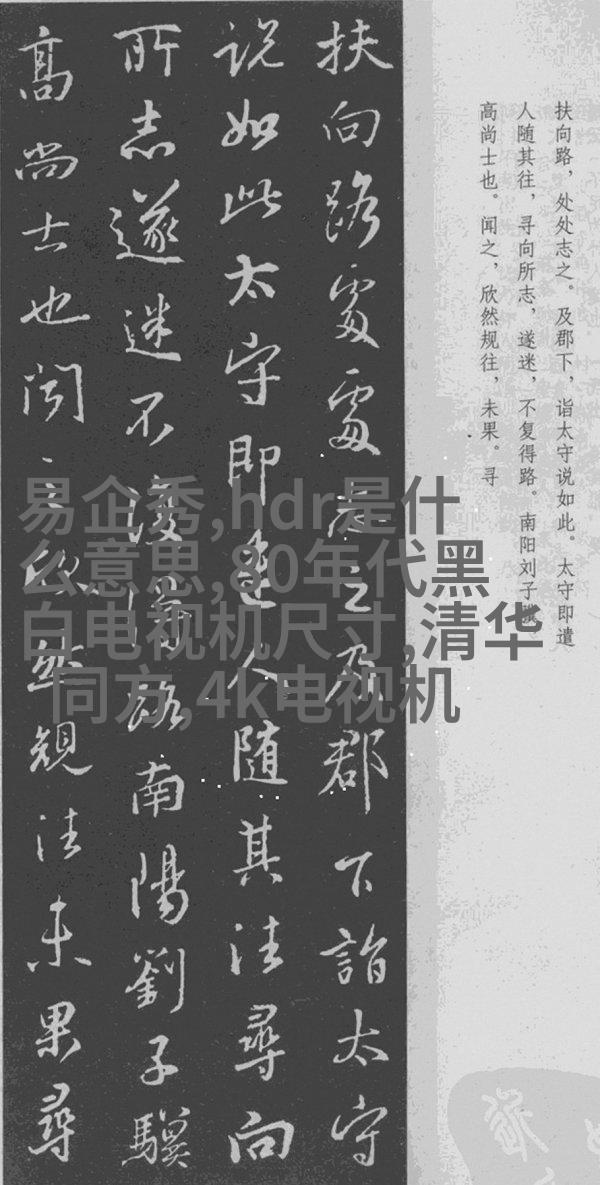 扶向路，处处志之。及郡下，诣太守说如此。太守即遣
人随其往，寻向所志，遂迷，不复得路。南阳刘子骥，
高尚士也。闻之，欣然规往，未果。寻
扶向路處處志之及郡下詣太守
说如此太守即遣人随其往尋向
所志遂迷不復得路南陽劉子驥
高尚士也闻之欣然規往未果尋
易企秀,hdr是什
么意思,80年代黑
白电视机尺寸,清华
同方,4k电视机